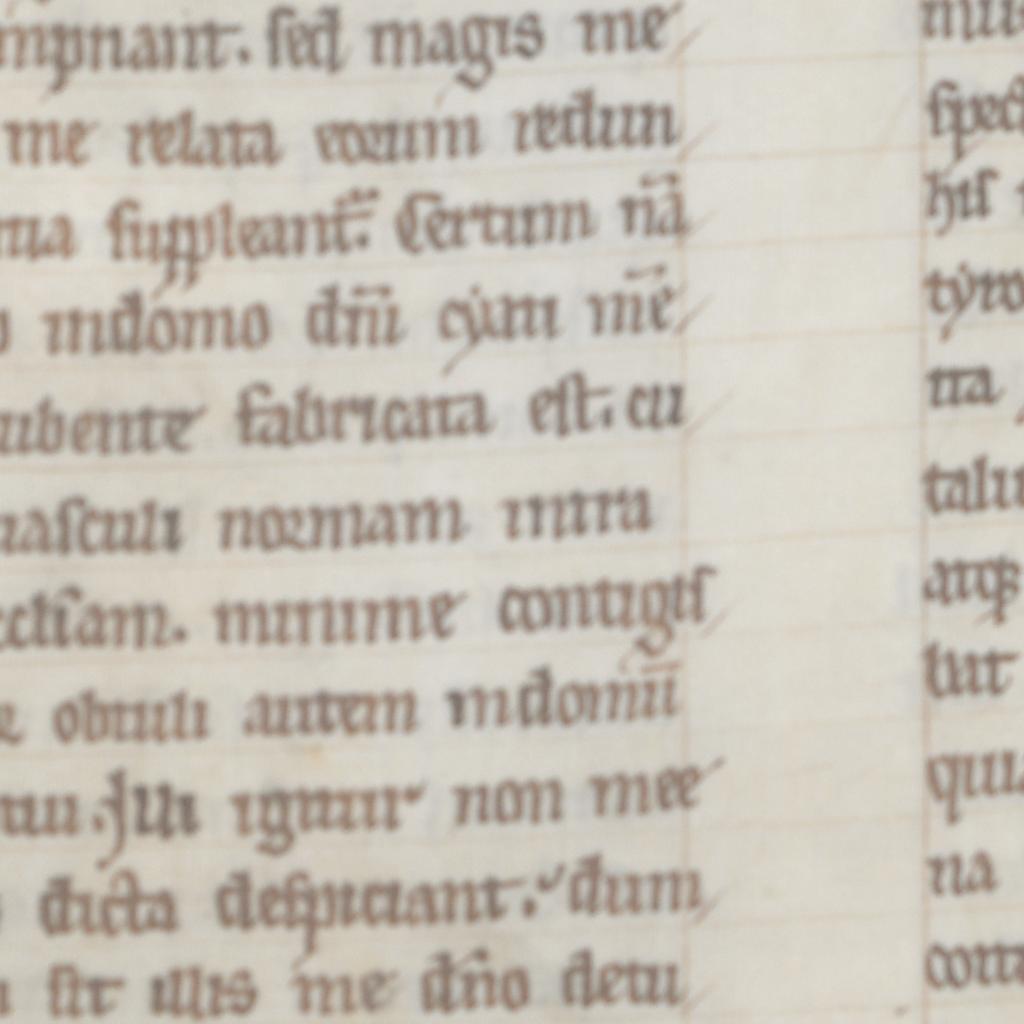 mpnant. sed magis me
me relata votum redun
suppleant. Certum nā
indomo dn̄i cẏan m̄e
ubente fabricata est. cu
masculi normam intra
ecclīam. minime contigis
obtuli autem indomū
Illi igitur non mee
dicta despiciant. dum
sit illis me dn̄o detu
spec
his
tẏro
tra
talu
atqꝫ
tut
quia
na